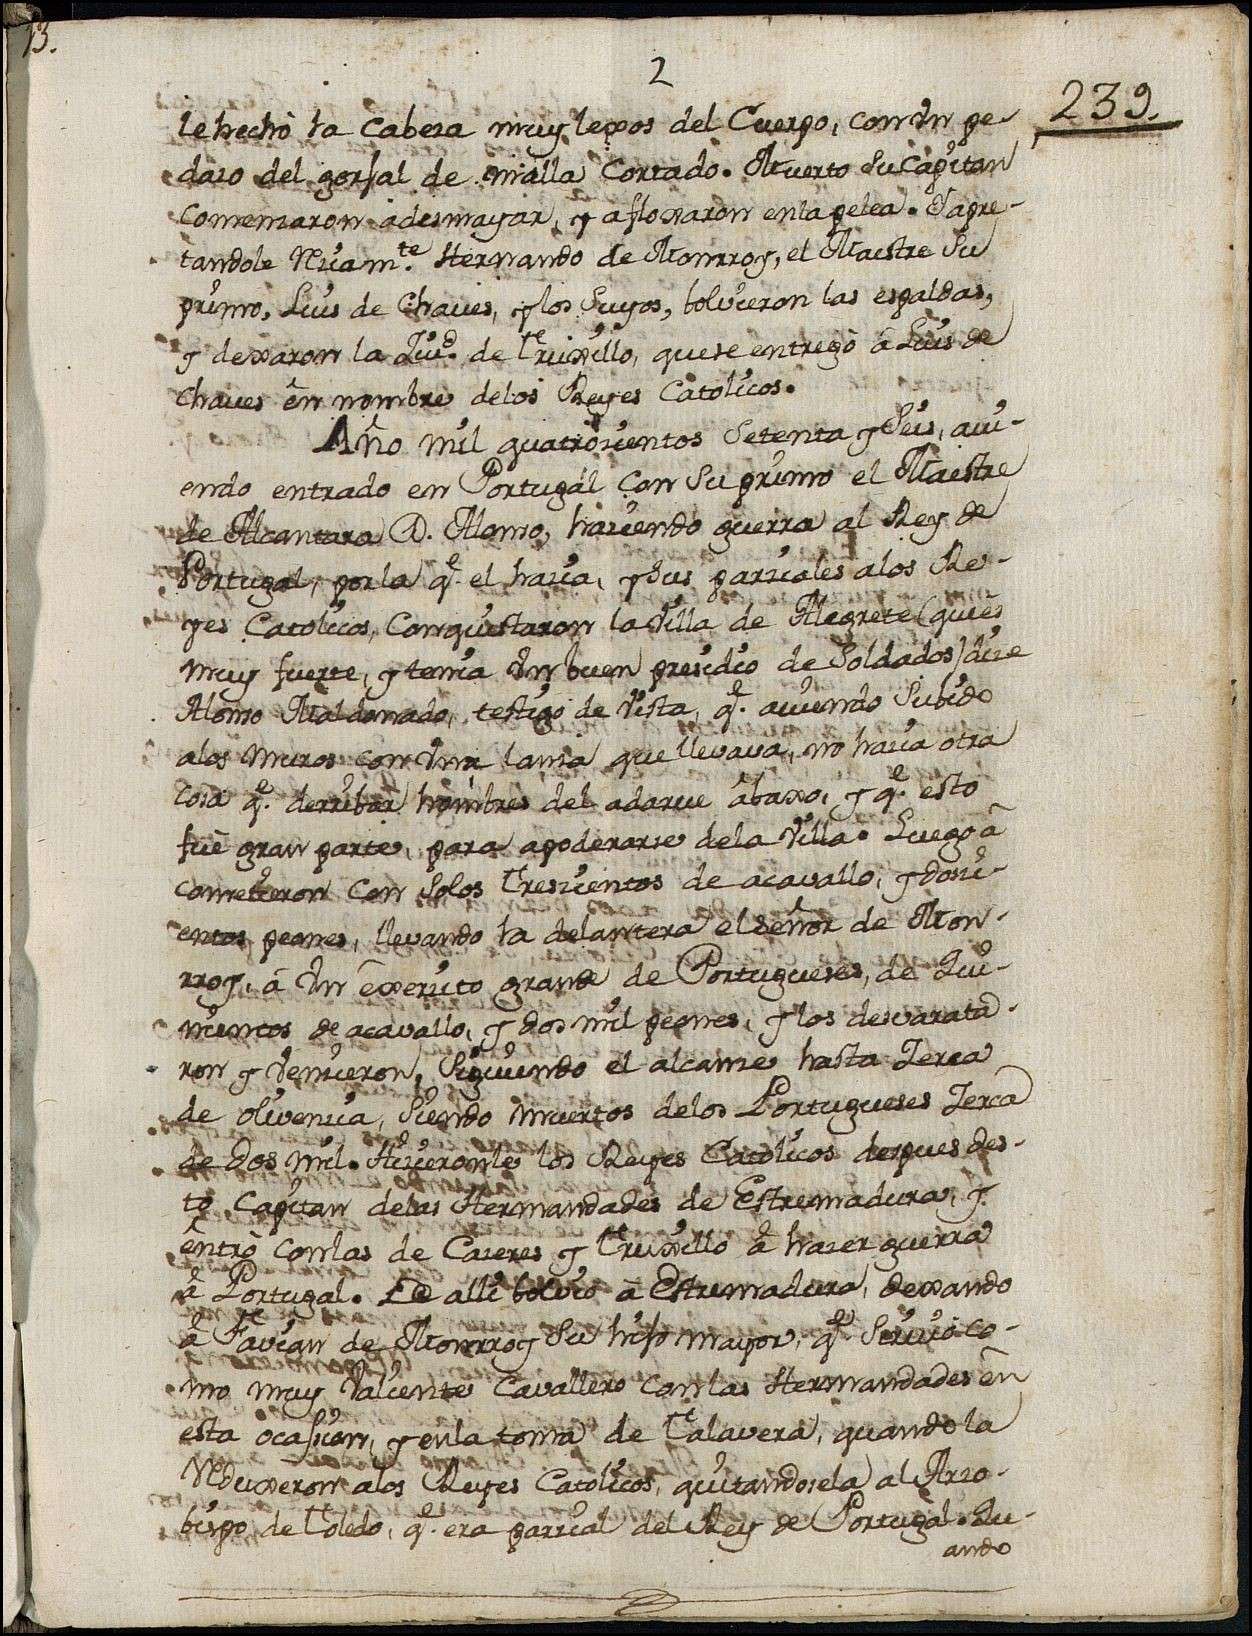 13.
2
239.
le hechò la Cabeza muy lexos del Cuerpo, con Vn pe-
dazo del gorjal de malla Cortado. Muerto Su Capitan
Comenzaron à desmayar, y afloxaron en la pelea. Y apre-
tandole Reciam.te Hernando de Monrroy, el Maestre Su
primo, Luis de Chaues, y los Suyos, bolvieron las espaldas,
y dexaron la Ziud. de Truxillo, que se entregò â Luis de
Chaues en nombre delos Reyes Catolicos.
Año mil quatrozientos Setenta y Seis, avi-
endo entrado en Portugál Con Su primo el Maestre
de Alcantara D. Alonso, haziendo guerra al Rey de
Portugal, por la q.e el hazia, y Sus parziales alos Re-
yes Catolicos, Conquistaron la Villa de Alegrete (qui es
muy fuerte, y tenia Vn buen presidio de Soldados) dize
Alonso Maldonado, testigo de Vista, q.e aviendo Subido
alos muros con Vna lanza que llevava, no hazia otra
Cosa q.e derribar hombres del adarue âbaxo, y q.e esto
fuê gran parte, para apoderarse dela Villa. Luego â
cometieron Con Solos Trezientos de acavallo, y dozi-
entos peones, llevando la delantera el Señor de Mon-
rroy, â Vn êxerzito grande de Portugueses, de Qui-
nientos de acavallo, y dos mil peones, y los desvarata-
ron y Venzieron, Siguiendo el alcanze hasta Zerca
de olivenzia, Siendo muertos delos Portugueses Zerca
de Dos mil. Hizieronle los Reyes Catolicos despues des-
to Capitan delas Hermandades de Estremadura, y
êntrò con las de Cazeres y Truxillo â hazer guerra
â Portugal. De alli bolvio â Estremadura, dexando
â Favian de Monrroy Su hijo mayor, q.e Sirvio co-
mo muy Valiente Cavallero con las Hermandades ên
esta ocasion, y en la toma de Talavera, quando la
Reduxeron alos Reyes Catolicos, quitandosela al Arzo-
bispo de Toledo, q.e era parzial del Rey de Portugal. Qu-
ando